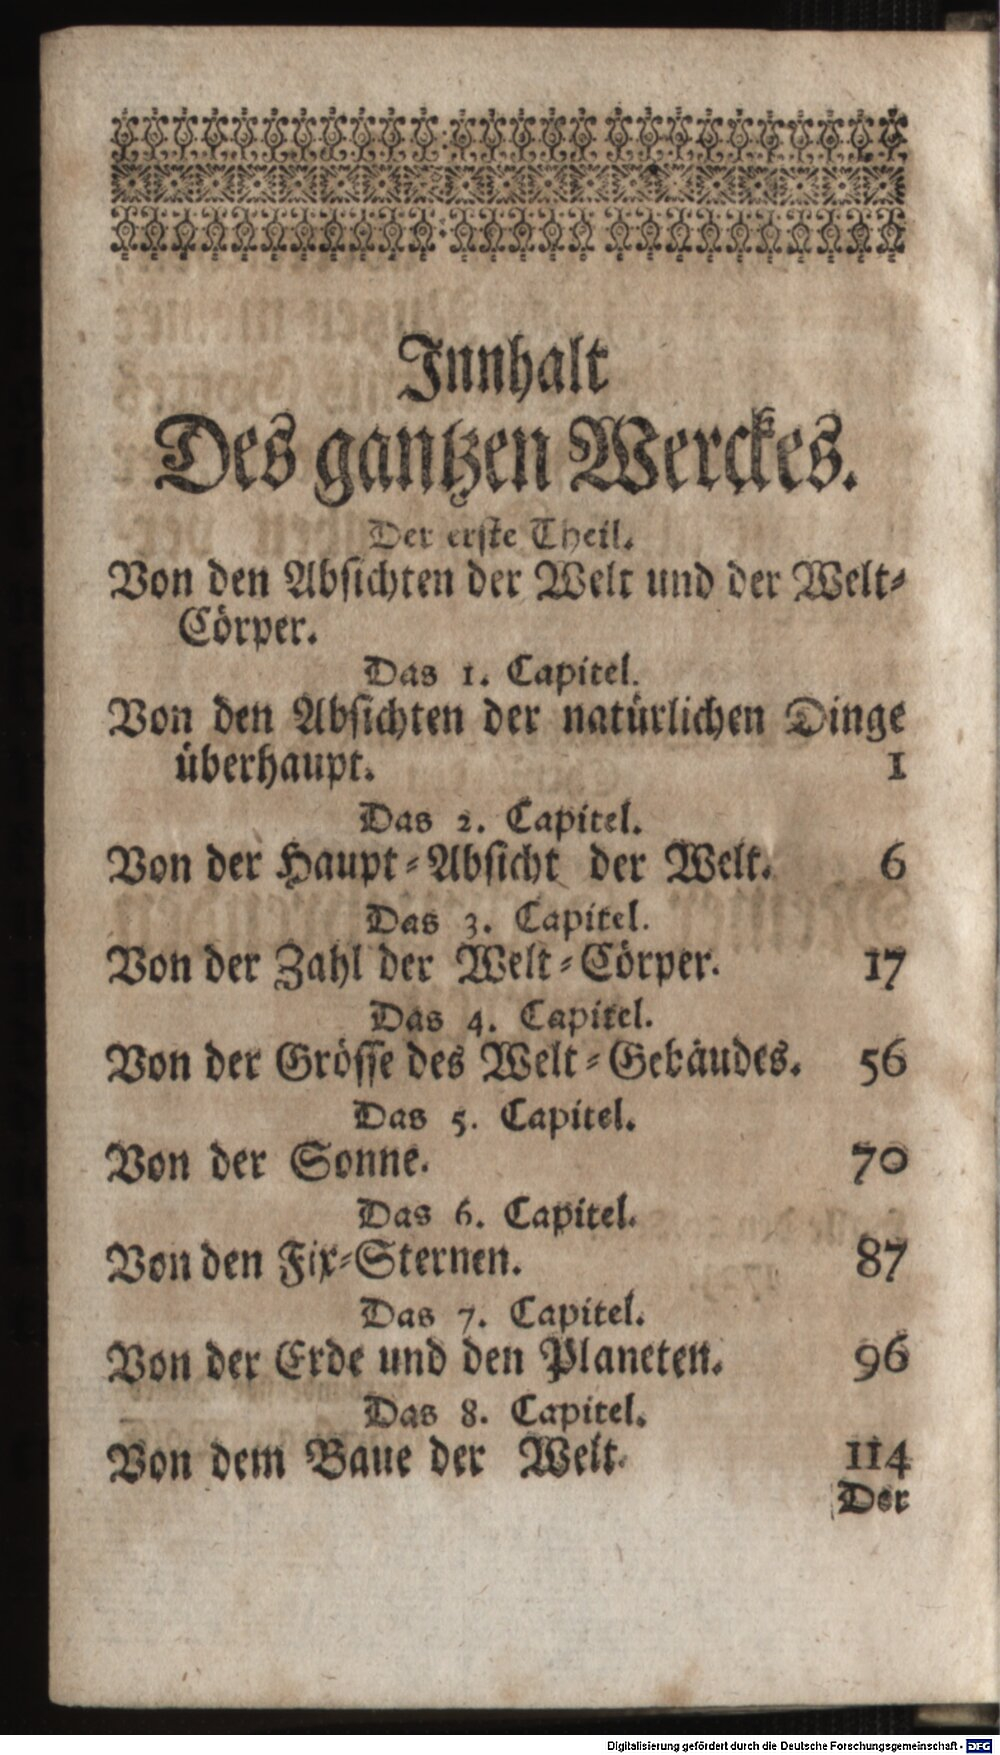 Innhalt
Des gantzen Werckes.
Der erste Theil.
Von den Absichten der Welt und der Welt-
Cörper.
Das 1. Capitel.
Von den Absichten der natürlichen Dinge
überhaupt. 1
Das 2. Capitel.
Von der Haupt-Absicht der Welt. 6
Das 3. Capitel.
Von der Zahl der Welt-Cörper. 17
Das 4. Capitel.
Von der Grösse des Welt-Gebäudes. 56
Das 5. Capitel.
Von der Sonne. 70
Das 6. Capitel.
Von den Fix-Sternen. 87
Das 7. Capitel.
Von der Erde und den Planeten. 96
Das 8. Capitel.
Von dem Baue der Welt. 114
Der
Digitalisierung gefördert durch die Deutsche Forschungsgemeinschaft - DFG